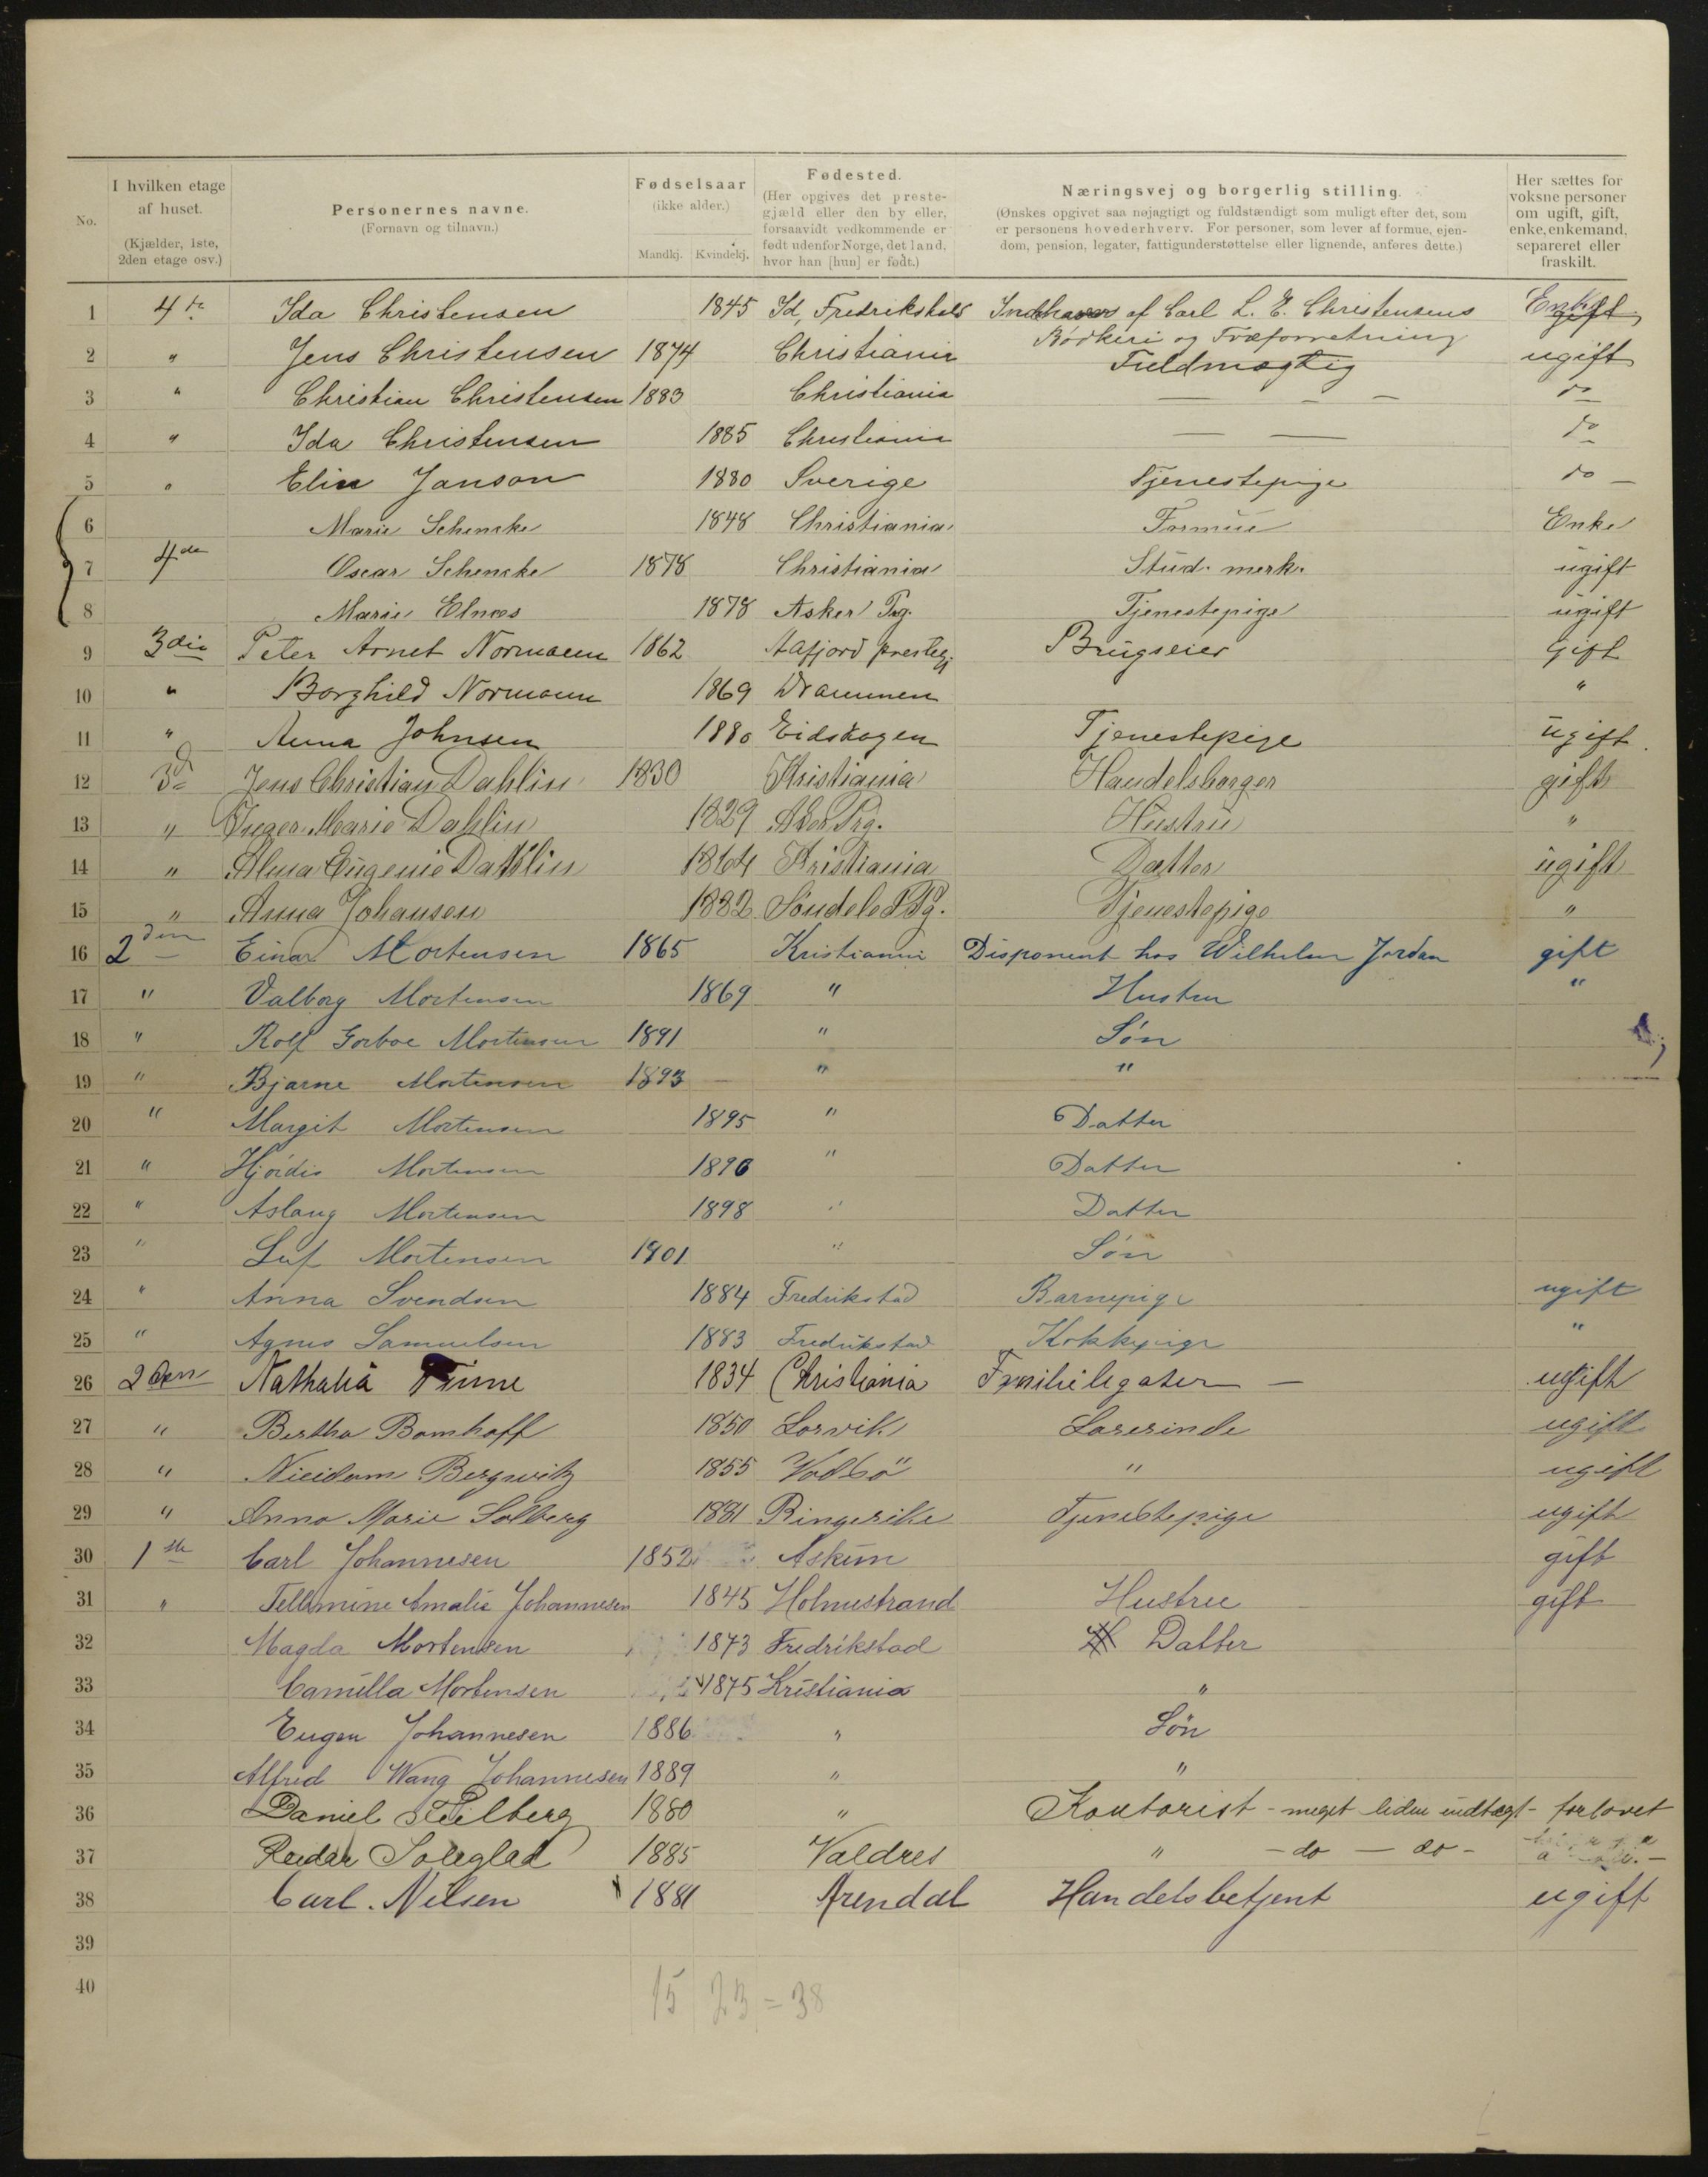 No.
I hvilken etage af huset.
(Kjælder, 1ste, 2den etage osv.)
Personernes navne.
(Fornavn og tilnavn.)
Fødselsaar
(ikke alder.)
Mandkj. Kvindekj.
Fødested.
(Her opgives det prestegjæld eller den by eller, forsaavidt vedkommende er født udenfor Norge, det land, hvor han [hun] er født.)
Næringsvej og borgerlig stilling.
(Ønskes opgivet saa nøjagtigt og fuldstændigt som muligt efter det, som er personens hovederhverv. For personer, som lever af formue, ejendom, pension, legater, fattigunderstøttelse eller lignende, anføres dette.)
Her sættes for voksne personer om ugift, gift, enke, enkemand, separeret eller fraskilt.
1 4de Ida Christensen 1845 Id, Fredrikshald Indehaver af Carl L. E. Christensens Enke gift
Bødkeri og Træforretning
2 " Jens Christensen 1874 Christiania Fuldmægtig ugift
3 " Christian Christensen 1883 Christiania — — — do
4 " Ida Christensen 1885 Christiania — — do
5 " Elin Janson 1880 Sverige Tjenestepige do —
6 Marie Schencke 1848 Christiania Formue Enke
7 4de Oscar Schencke 1878 Christiania Stud. merk. ugift
8 Marie Elnæs 1878 Asker Prg. Tjenestepige ugift
9 3die Peter Arnet Normann 1862 Aafjord prestegj Brugseier Gift
10 " Borghild Normann 1869 Drammen "
11 " Anna Johnsen 1880 Eidskogen Tjenestepige ugift
12 3d Jens Christian Dahlin 1830 Kristiania Handelsborger gift
13 " Inger Marie Dahlin 1829 Aker Prg. Hustru "
14 " Alma Eugenie Dahlin 1864 Kristiania Datter ugift
15 " Anna Johansen 1882 Søndeled Prg. Tjenestepige "
16 2den Einar Mortensen 1865 Kristiania Disponent hos Wilhelm Jordan gift
17 " Valborg Mortensen 1869 " Hustru "
18 " Rolf Mortensen 1891 " Søn
19 " Bjarne Mortensen 1893 " "
20 " Margit Mortensen 1895 " Datter
21 " Hjørdis Mortensen 1896 " Datter
22 " Aslaug Mortensen 1898 " Datter
23 " Leif Mortensen 1901 " Søn
24 " Anna Svendsen 1884 Fredrikstad Barnepige ugift
25 " Agnes Samuelsen 1883 Fredrikstad Kokkepige "
26 2den Nathalia Finne 1834 Christiania Familielegater — ugift
27 " Bertha Bomhoff 1850 Larvik Lærerinde ugift
28 " Bergwitz 1855 Vadsø " ugift
29 " Anna Marie Solberg 1881 Ringerike Tjenestepige ugift
30 1ste Carl Johannesen 1852 Askim gift
31 " Amalie Johannesen 1845 Holmestrand Hustru gift
32 Magda Mortensen 1873 Fredrikstad Datter
33 Camilla Mortensen 1875 Kristiania "
34 Eugen Johannesen 1886 " Søn
35 Alfred Wang Johannesen 1889 " "
36 Daniel 1880 " Kontorist - meget liden indtægt - forlovet
37 Reidar Soleglad 1885 Valdres " - do - do -
38 Carl. Nilsen 1881 Arendal Handelsbetjent ugift
39
40
15 23 = 38